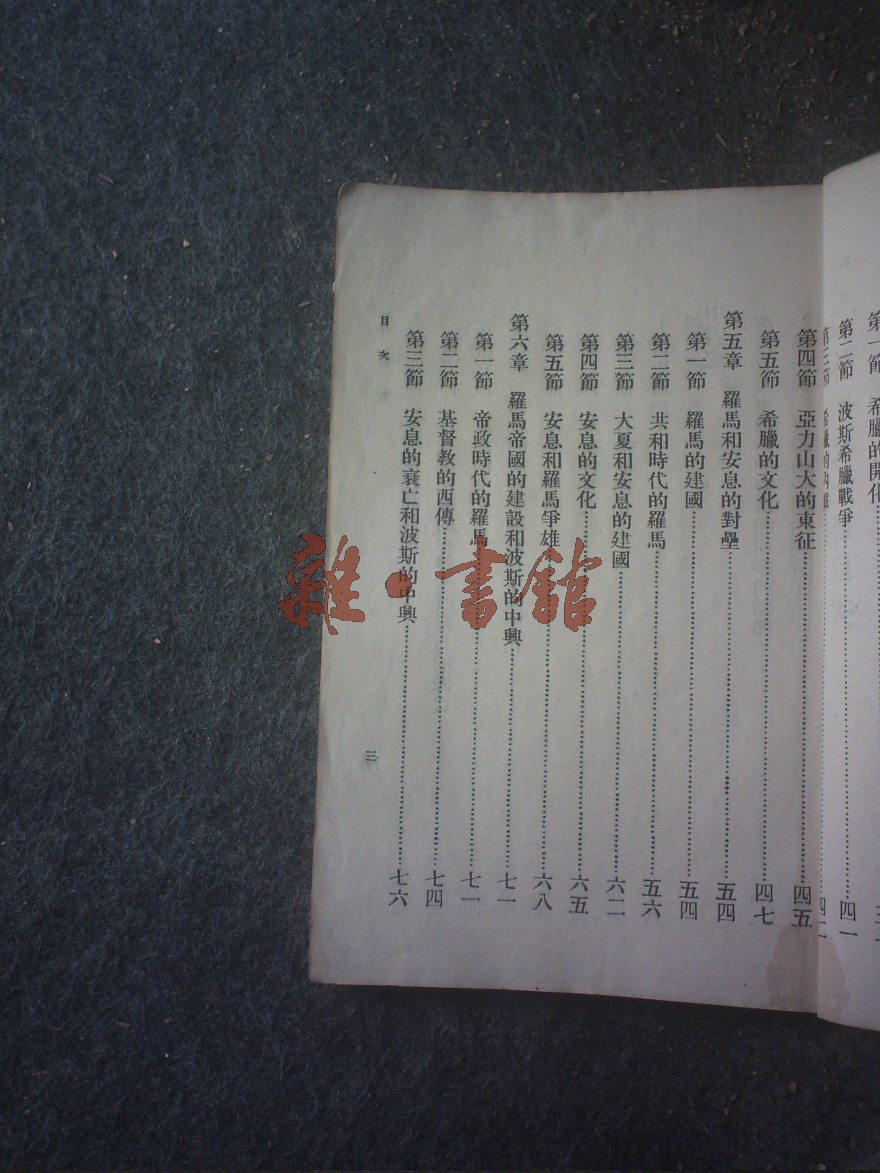 第一節 希臘的開化
第二節 波斯希臘戰爭……四一
第三節 希臘的內
第四節 亞力山大的東征……四五
第五節 希臘的文化……四七
第五章 羅馬和安息的對壘……五四
第一節 羅馬的建國……五四
第二節 共和時代的羅馬……五六
第三節 大夏和安息的建國……六二
第四節 安息的文化……六五
第五節 安息和羅馬爭雄……六八
第六章 羅馬帝國的建設和波斯的中興……七一
第一節 帝政時代的羅馬……七一
第二節 基督教的西傳……七四
第三節 安息的衰亡和波斯的中興……七六
目次
三
雜·書館